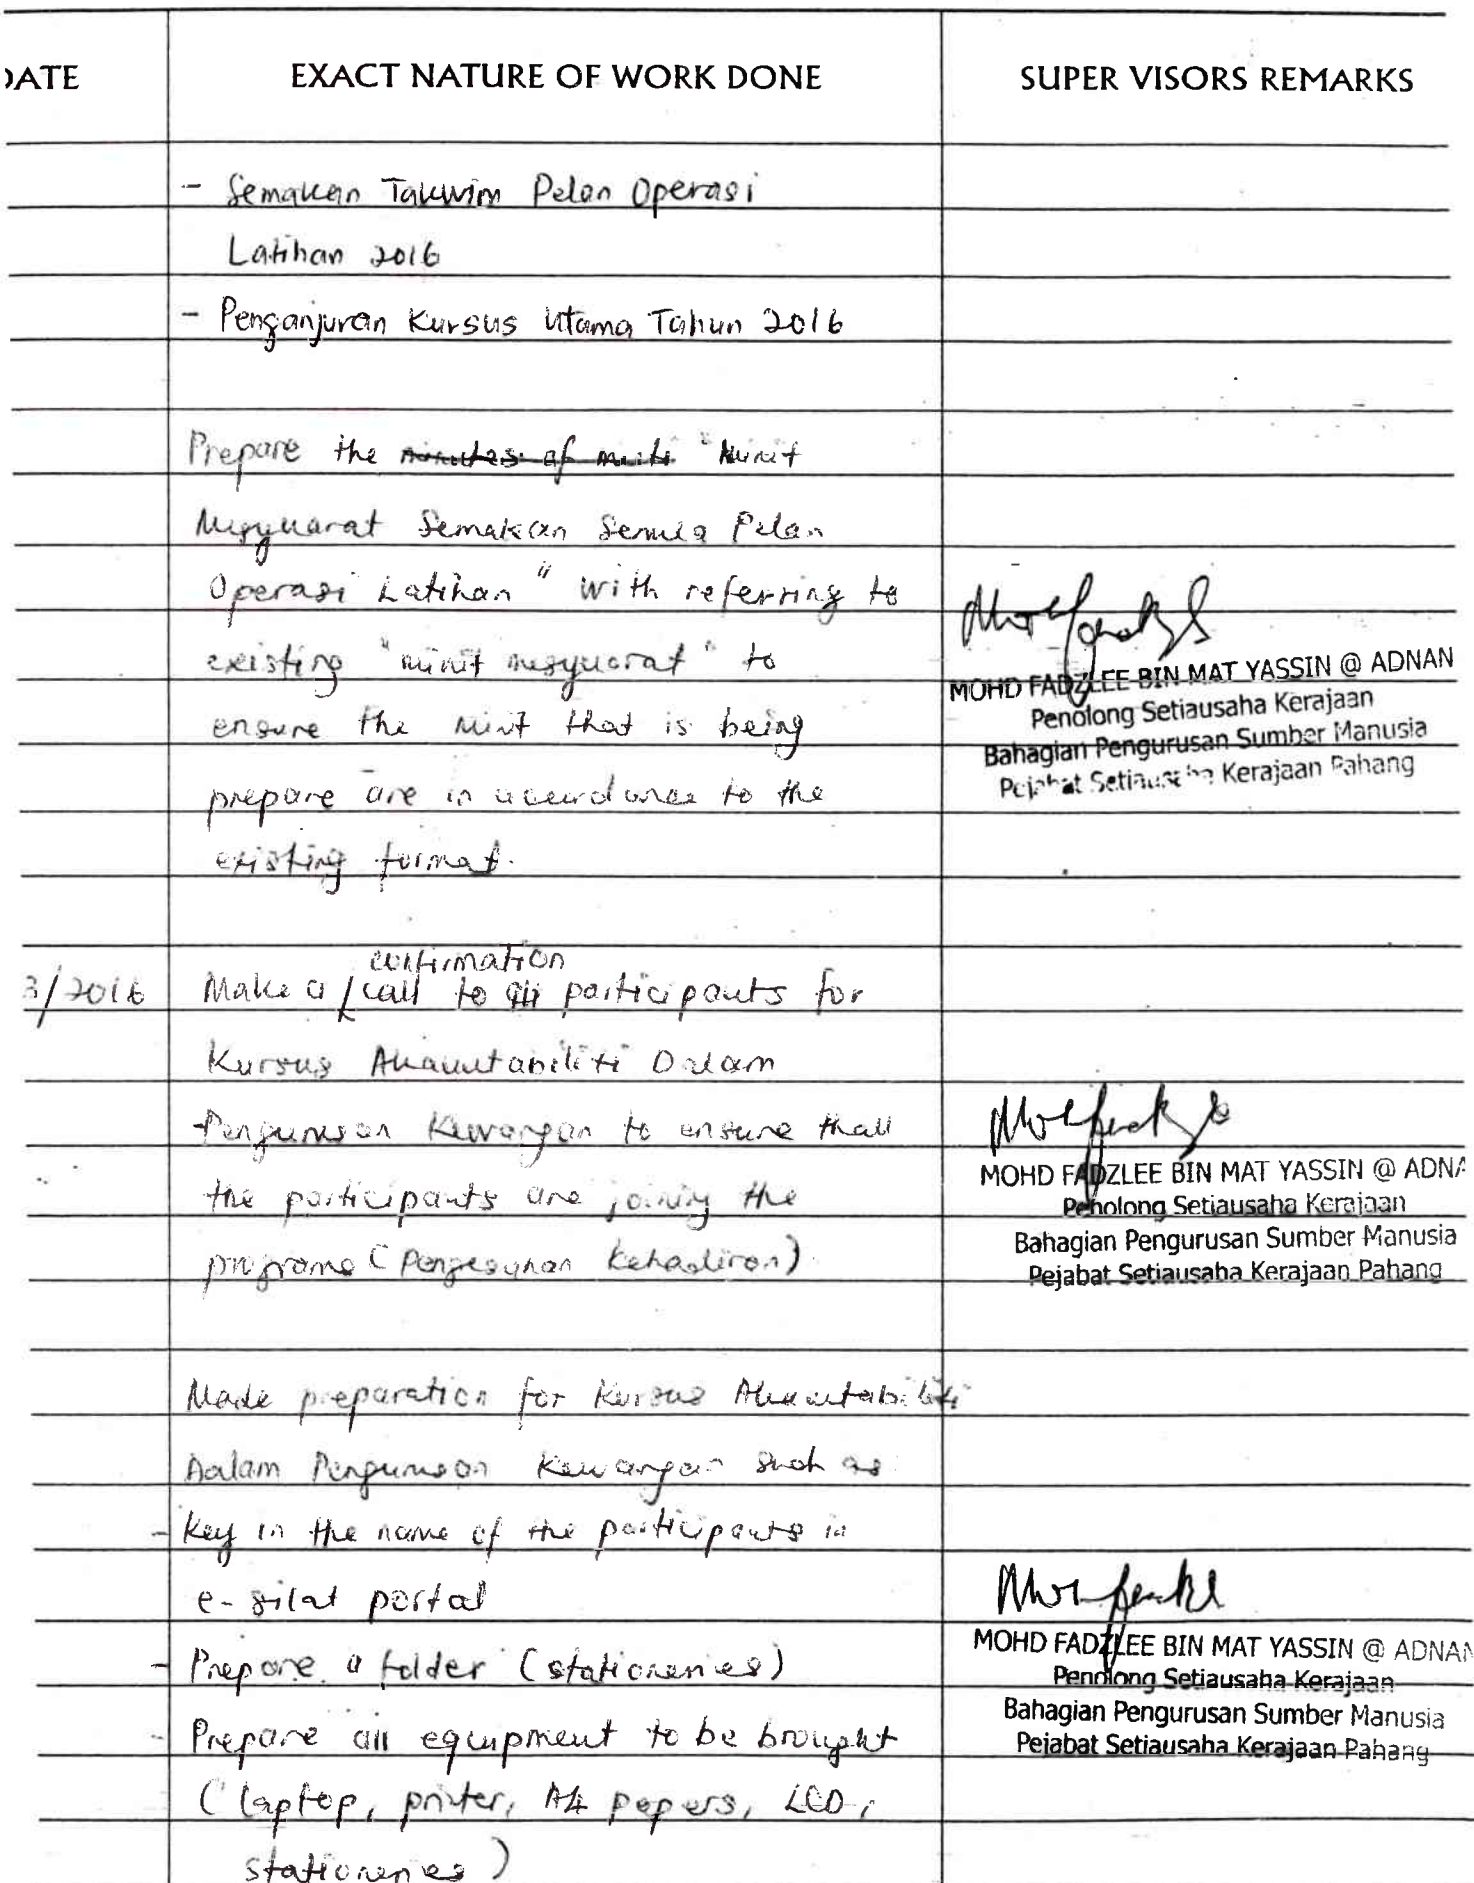 DATE EXACT NATURE OF WORK DONE SUPER VISORS REMARKS
- Semakan Takwim Pelan Operasi
Latihan 2016
- Penganjuran Kursus Utama Tahun 2016
Prepare the minutes of "Minit
Mesyuarat Semakan Semula Pelan
Operasi Latihan" with referring to
existing "minit mesyuarat" to
ensure the minit that is being
prepare are in accordance to the
existing format.
MOHD FADZLEE BIN MAT YASSIN @ ADNAN
Penolong Setiausaha Kerajaan
Bahagian Pengurusan Sumber Manusia
Pejabat Setiausaha Kerajaan Pahang
3/2016 Make a confirmation call to all participants for
Kursus Akauntabiliti Dalam
Pengurusan Kewangan to ensure thall
the participants are joining the
programe (Pengesahan Kehadiran)
MOHD FADZLEE BIN MAT YASSIN @ ADNA
Penolong Setiausaha Kerajaan
Bahagian Pengurusan Sumber Manusia
Pejabat Setiausaha Kerajaan Pahang
Made preparation for Kursus Akauntabiliti
Dalam Pengurusan Kewangan such as
- Key in the name of the participants in
e-silat portal
- Prepare a folder (stationeries)
- Prepare all equipment to be brought
(laptop, printer, A4 papers, LCD,
stationeries)
MOHD FADZLEE BIN MAT YASSIN @ ADNAN
Penolong Setiausaha Kerajaan
Bahagian Pengurusan Sumber Manusia
Pejabat Setiausaha Kerajaan Pahang